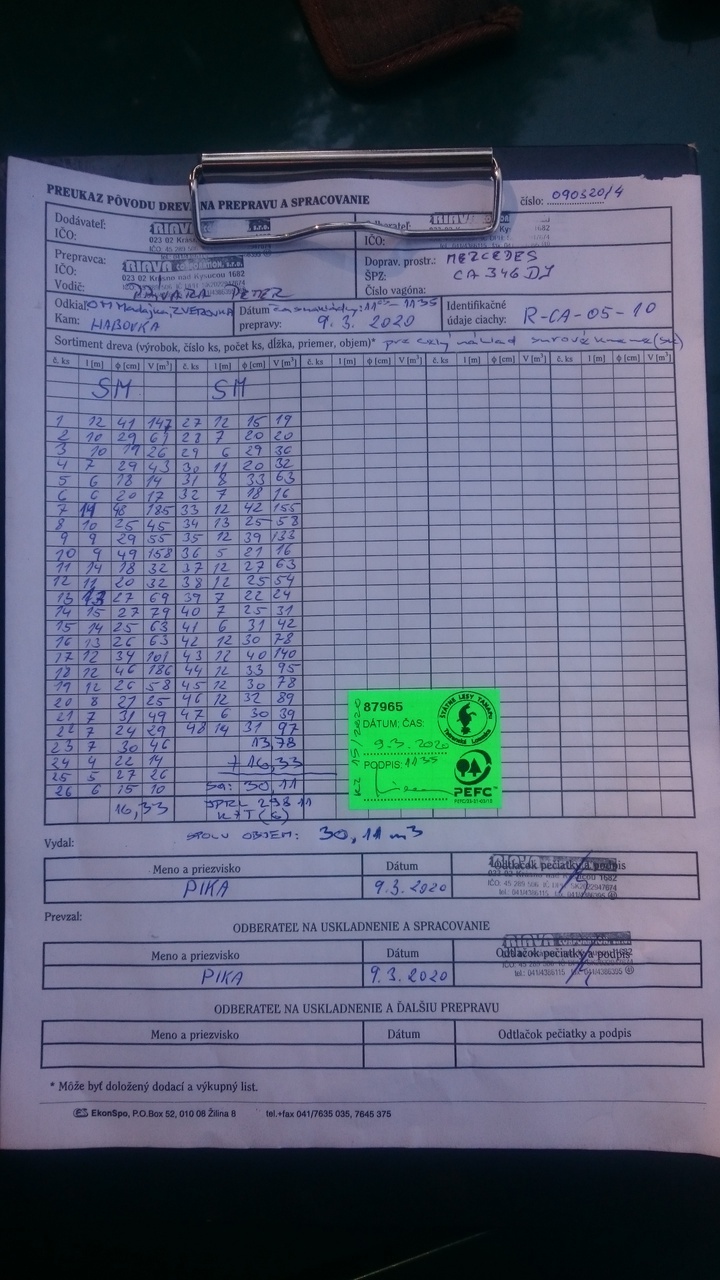 PREUKAZ PÔVODU DREVA NA PREPRAVU A SPRACOVANIE
číslo: 090320/4
Dodávateľ: RIAVA
IČO: 023 02 Krásno
Odberateľ: RIAVA
IČO:
Prepravca: RIAVA CORPORATION, s.r.o.
IČO: 023 02 Krásno nad Kysucou 1682
Vodič: PETER
Doprav. prostr.: MERCEDES
ŠPZ: CA 346 DJ
Číslo vagóna:
Odkiaľ: OM
Kam: HABOVKA
Dátum
prepravy: 9. 3. 2020
Identifikačné
údaje ciachy: R-CA-05-10
Sortiment dreva (výrobok, číslo ks, počet ks, dĺžka, priemer, objem)* pre celý náklad surové kmene
č. ks l [m] ϕ [cm] V [m³] č. ks l [m] ϕ [cm] V [m³] č. ks l [m] ϕ [cm] V [m³] č. ks l [m] ϕ [cm] V [m³] č. ks l [m] ϕ [cm] V [m³]
SM SM
1 12 41 147 27 12 15 19
2 10 29 61 28 7 20 20
3 10 19 26 29 6 29 36
4 7 29 43 30 11 20 32
5 6 18 14 31 8 33 63
6 6 20 17 32 7 18 16
7 14 48 185 33 12 42 155
8 10 25 45 34 13 25 58
9 9 29 55 35 12 39 133
10 9 49 158 36 5 21 16
11 14 18 32 37 12 27 63
12 11 20 32 38 12 25 54
13 13 27 69 39 7 22 24
14 15 27 79 40 7 25 31
15 14 25 63 41 6 31 42
16 13 26 63 42 12 30 78
17 12 34 101 43 12 40 140
18 12 46 186 44 12 33 95
19 12 26 58 45 12 30 78
20 8 21 25 46 12 32 89
21 7 31 49 47 6 30 39
22 7 24 29 48 14 31 97
23 7 30 46 13,78
24 4 22 14 + 16,33
25 5 27 26 30,11
26 6 15 10
16,33
SPOLU OBJEM: 30,11 m3
87965
DÁTUM; ČAS:
9.3.2020
PODPIS: 11 35
KZ 15/2020
ŠTÁTNE LESY TANAPU
Tatranská Lomnica
PEFC™
Vydal:
Meno a priezvisko Dátum Odtlačok pečiatky a podpis
PIKA 9.3.2020
Prevzal:
ODBERATEĽ NA USKLADNENIE A SPRACOVANIE
Meno a priezvisko Dátum Odtlačok pečiatky a podpis
PIKA 9.3.2020
ODBERATEĽ NA USKLADNENIE A ĎALŠIU PREPRAVU
Meno a priezvisko Dátum Odtlačok pečiatky a podpis
* Môže byť doložený dodací a výkupný list.
EkonSpo, P.O.Box 52, 010 08 Žilina 8 tel.+fax 041/7635 035, 7645 375